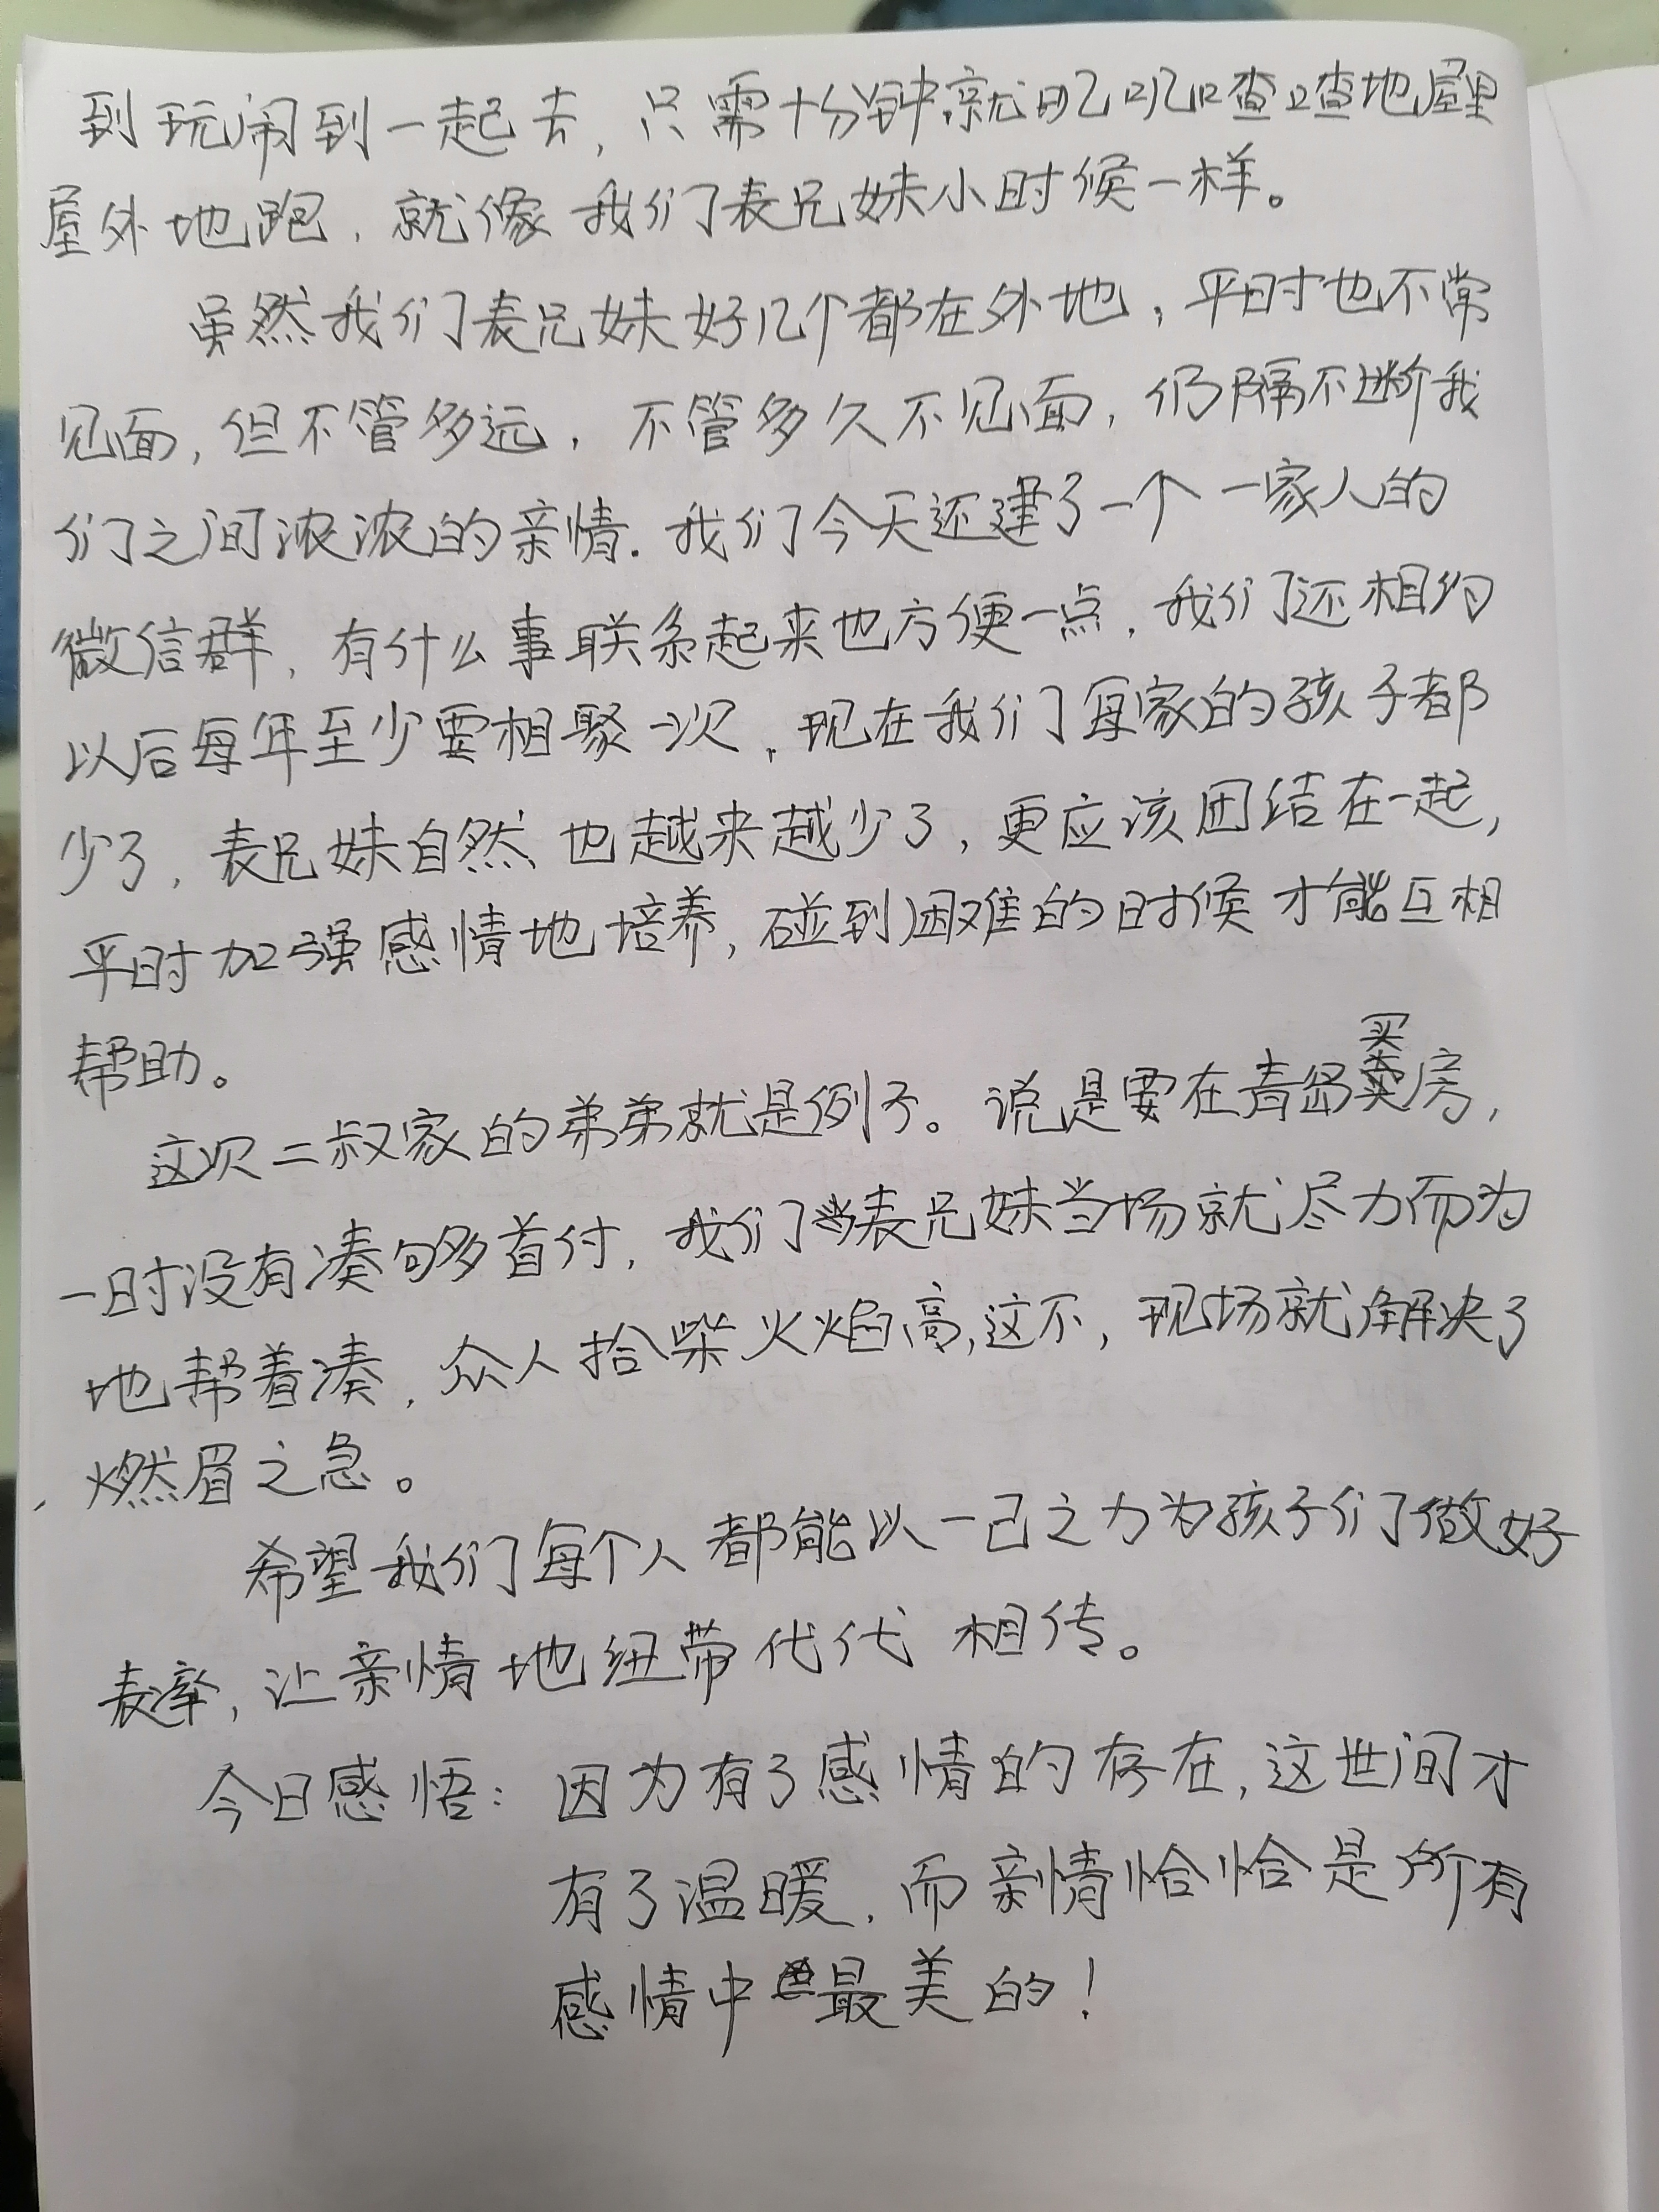 到玩闹到一起去，只需十分钟，就叽叽喳喳地屋里
屋外地跑，就像我们表兄妹小时候一样。
虽然我们表兄妹好几个都在外地，平时也不常
见面，但不管多远，不管多久不见面，仍隔不断我
们之间浓浓的亲情。我们今天还建了一个一家人的
微信群，有什么事联系起来也方便一点，我们还相约
以后每年至少要相聚一次，现在我们每家的孩子都
少了，表兄妹自然也越来越少了，更应该团结在一起，
平时加强感情地培养，碰到困难的时候才能互相
帮助。
这次二叔家的弟弟就是例子。说是要在青岛买房，
一时没有凑够首付，我们表兄妹当场就尽力而为
地帮着凑，众人拾柴火焰高，这不，现场就解决了
燃眉之急。
希望我们每个人都能以一己之力为孩子们做好
表率，让亲情地纽带代代相传。
今日感悟：因为有了感情的存在，这世间才
有了温暖，而亲情恰恰是所有
感情中最美的！